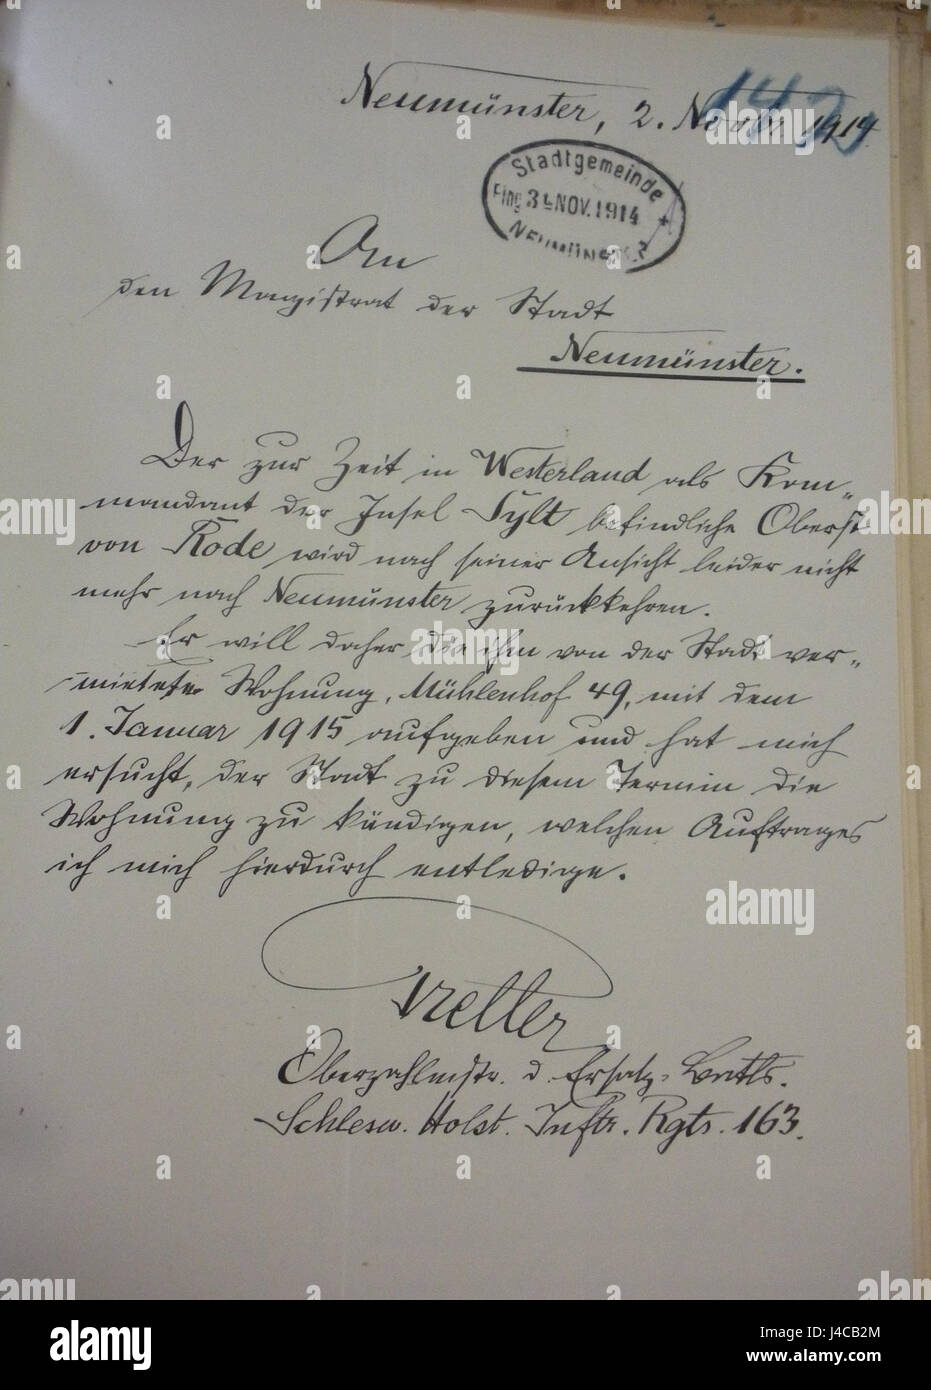 Neumünster, 2. Novbr. 1914
Stadtgemeinde
Eing. 3. NOV. 1914
NEUMÜNSTER
An
den Magistrat der Stadt
Neumünster.
Der zur Zeit in Westerland als Kom-
mandant der Insel Sylt befindliche Oberst
von Rode wird nach seiner Ansicht leider nicht
mehr nach Neumünster zurückkehren.
Er will daher die ihm von der Stadt ver-
mietete Wohnung, Mühlenhof 49, mit dem
1. Januar 1915 aufgeben und hat mich
ersucht, der Stadt zu diesem Termin die
Wohnung zu kündigen, welchen Auftrages
ich mich hierdurch entledige.
Oberzahlmstr. d. Ersatz-Batls.
Schlesw. Holst. Inftr. Rgts. 163.
alamy
Image ID: J4CB2M
www.alamy.com